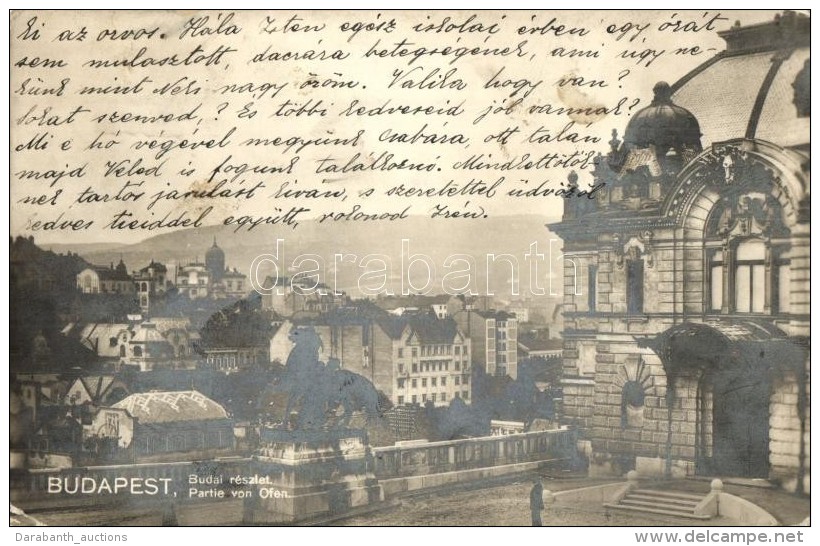 ki az orvos. Hála Isten egész iskolai évben egy órát
sem mulasztott, dacrára betegségének, ami úgy ne-
künk mint Neki nagy öröm. Valika hogy van?
Sokat szenved,? És többi kedveseid jól vannak?
Mi e hó végével megyünk Csabára, ott talán
majd Veled is fogunk találkozni. Mindkettőtök-
nek tartós javulást kíván, s szeretettel üdvözöl
kedves tieiddel együtt, rokonod Irén.
darabanth
BUDAPEST, Budai részlet.
Partie von Ofen.
Darabanth_auctions
http://www.delcampe.net